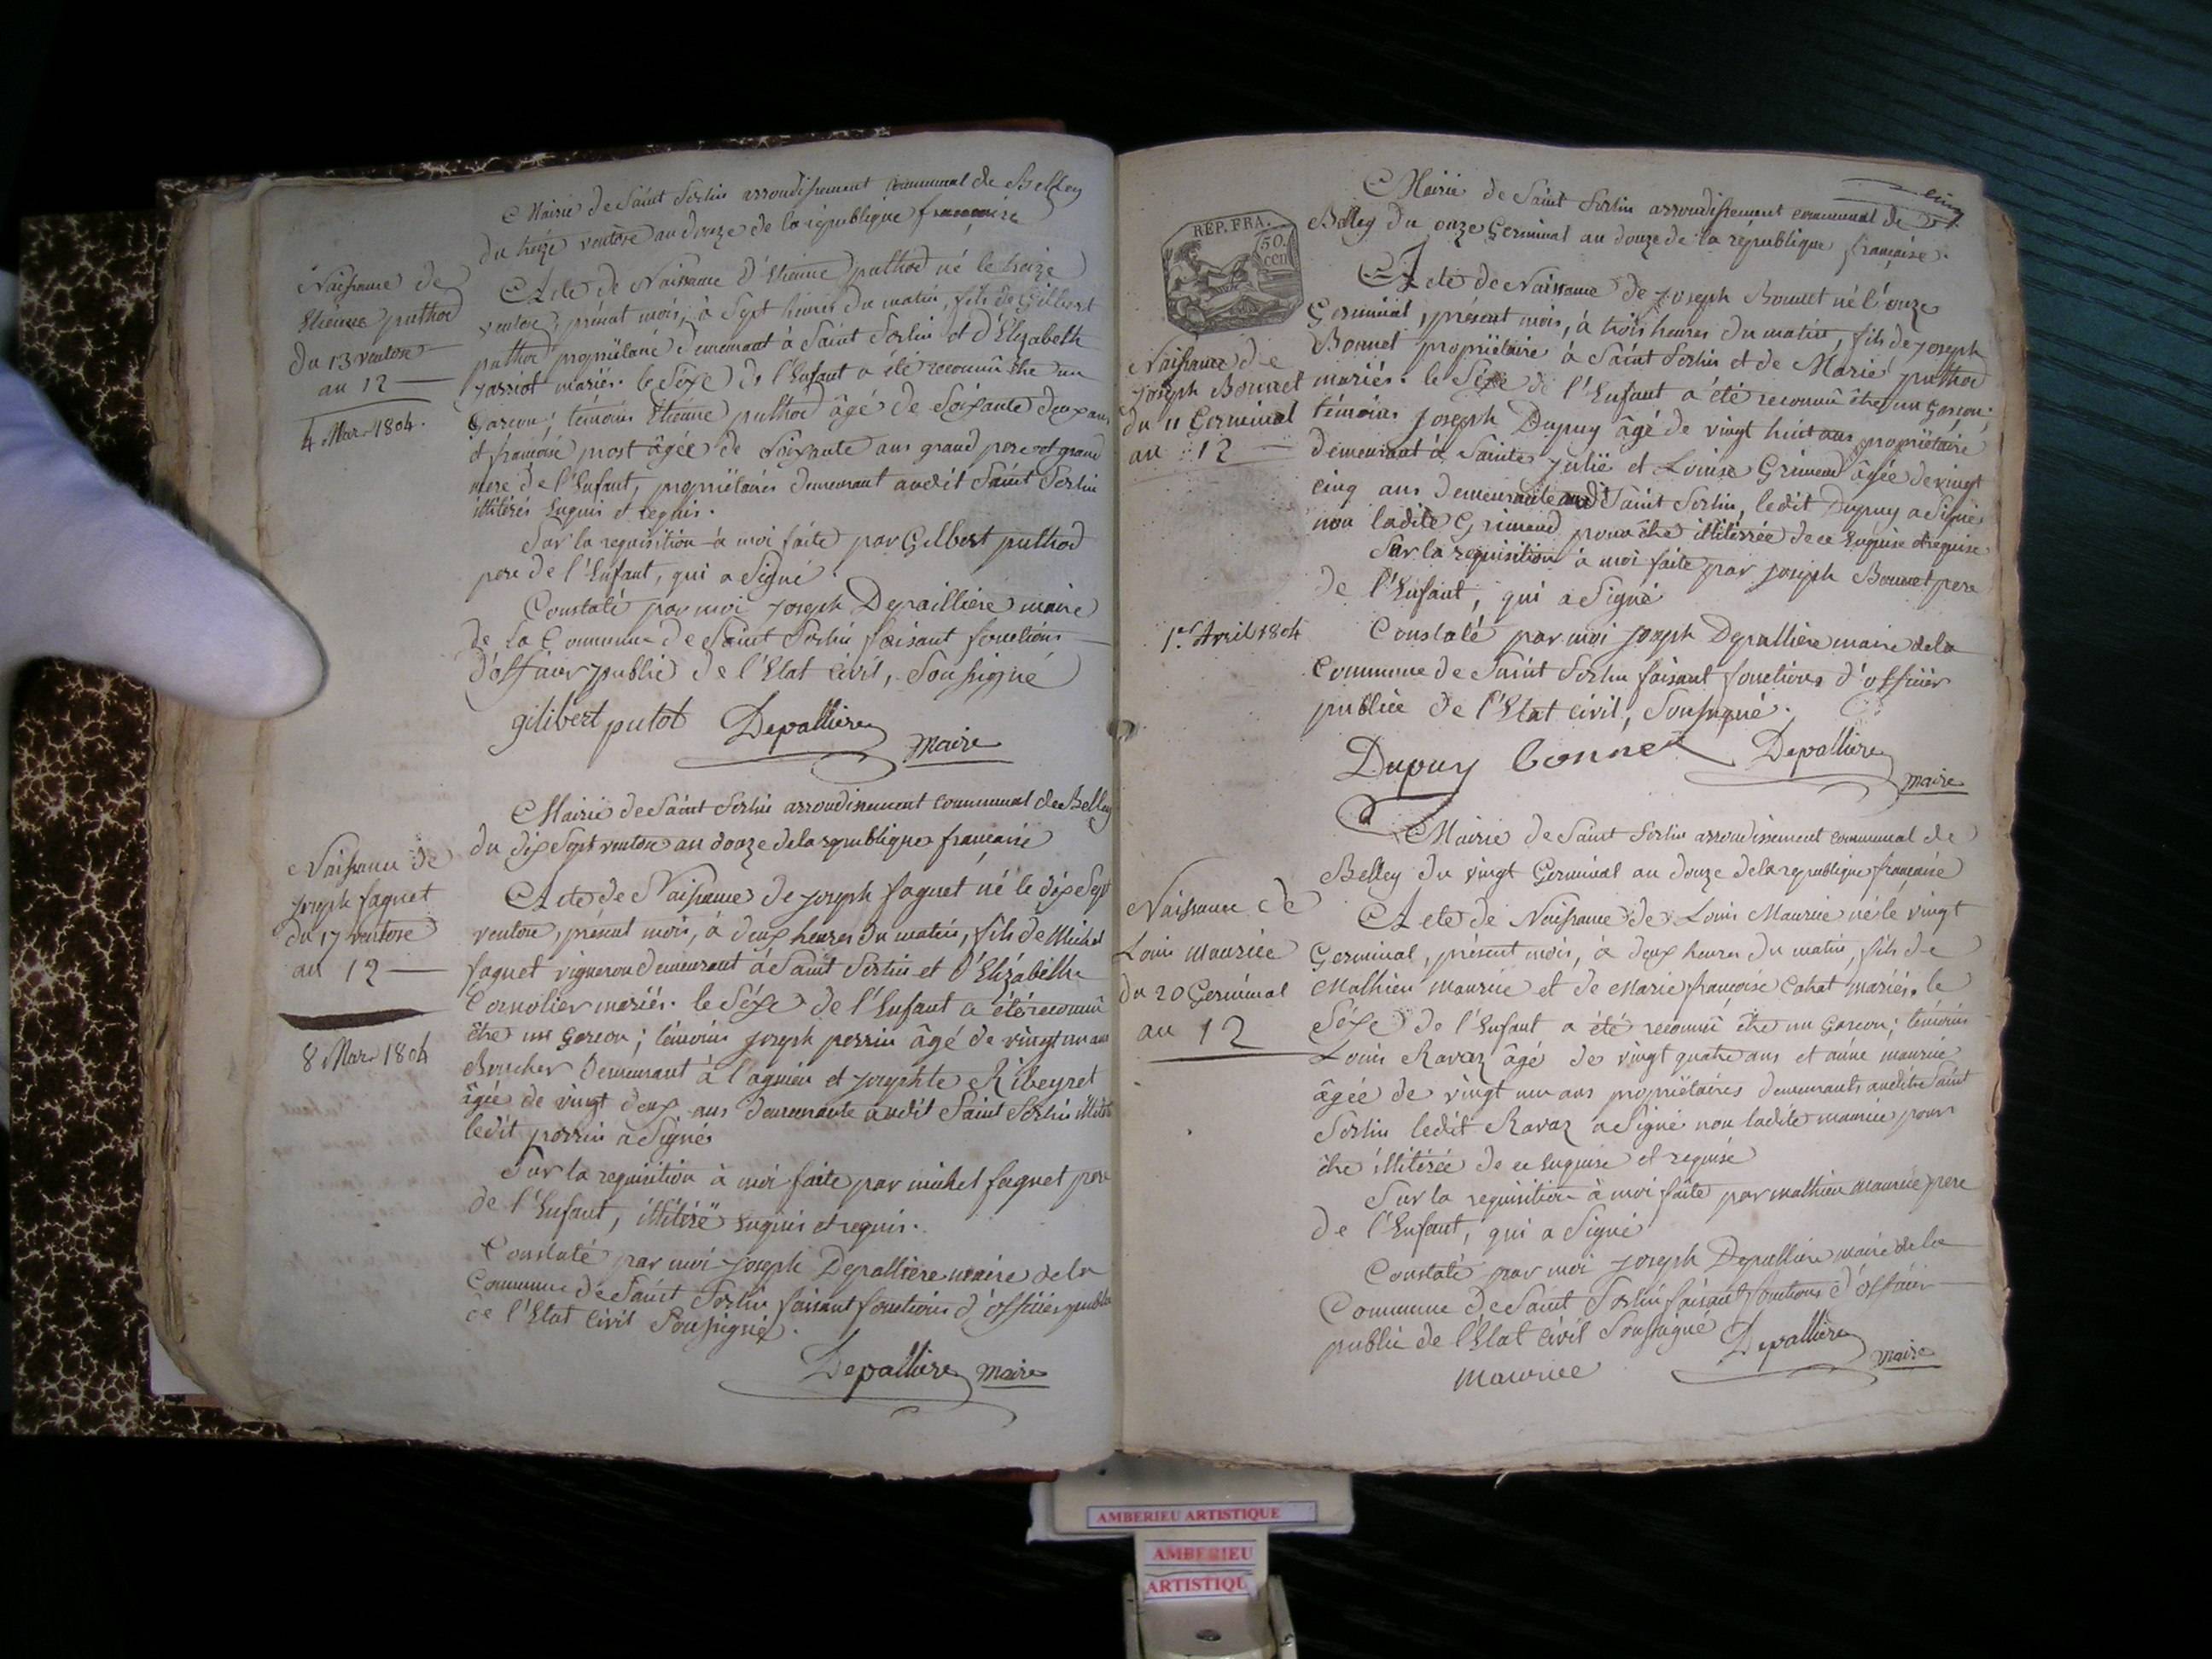 Mairie de Saint Sorlin arrondissement communal de Belley
du treize ventose an douze de la république française
Naissance de
Etienne puthod
du 13 ventose
an 12
4 Mars 1804.
Acte de Naissance d'Etienne puthod né le treize
ventose, présent mois, à Sept heures du matin, fils de Gilbert
puthod propriétaire demeurant à Saint Sorlin et d'Elizabeth
mariés. le Séxe de l'Enfant a été reconnû être un
Garcon; témoins Etienne puthod âgé de Soixante deux ans
et françoise prost âgée de Soixante ans grand pere et grand
mere de l'Enfant, propriétaires demeurant audit Saint Sorlin
illitérés Enquis et requis.
Sur la requisition à moi faite par Gilbert puthod
pere de l'Enfant, qui a Signé.
Constaté par moi Joseph Depailliere maire
de la Commune de Saint Sorlin faisant fonctions
d'officier public de l'Etat civil, Soussigné
gilibert putot Depalliere
maire
Mairie de Saint Sorlin arrondissement communal de Belley
du dix Sept ventose an douze de la republique française
Naissance de
joseph faguet
du 17 ventose
an 12
8 Mars 1804
Acte de Naissance de joseph faguet né le dix Sept
ventose, présent mois, à deux heures du matin, fils de Michel
faguet vigneron demeurant à Saint Sorlin et d'Elizabeth
Cornolier mariés. le Séxe de l'Enfant a été reconnû
être un Garcon; témoins joseph perrin âgé de vingt un ans
Boucher demeurant à lagnieu et josephte Ribeyret
âgée de vingt deux ans demeurante audit Saint Sorlin
ledit perrin a Signé
Sur la requisition à moi faite par michel faguet pere
de l'Enfant, illitéré Enquis et requis.
Constaté par moi Joseph Depalliere maire de la
Commune de Saint Sorlin faisant fonctions d'officier public
de l'Etat Civil Soussigné.
Depalliere maire
cinq
Mairie de Saint Sorlin arrondissement communal de
Belley du onze Germinal an douze de la république française.
REP. FRA.
50.
cen
Naissance de
Joseph Bonnet
du 11 Germinal
an 12
1er Avril 1804
Acte de Naissance de Joseph Bonnet né l'onze
Germinal, présent mois, à trois heures du matin, fils de Joseph
Bonnet propriétaire à Saint Sorlin et de Marie puthod
mariés. le Séxe de l'Enfant a été reconnû être un Garcon;
témoins Joseph Dupuy âgé de vingt huit ans propriétaire
demeurant à Sainte Julie et Louise Grimaud âgée de vingt
cinq ans demeurante audit Saint Sorlin, ledit Dupuy a Signé
non ladite Grimaud pour être illitérrée de ce Enquise et requise
Sur la requisition à moi faite par Joseph Bonnet pere
de l'Enfant, qui a Signé
Constaté par moi Joseph Depalliere maire de la
Commune de Saint Sorlin faisant fonctions d'officier
public de l'Etat civil, Soussigné.
Dupuy bonnet Depalliere
maire
Mairie de Saint Sorlin arrondissement communal de
Belley du vingt Germinal an douze de la republique française
Naissance de
Louis Maurice
du 20 Germinal
an 12
Acte de Naissance de Louis Maurice né le vingt
Germinal, présent mois, à deux heures du matin, fils de
Mathieu Maurice et de Marie françoise Cahat mariés. le
Séxe de l'Enfant a été reconnû être un Garcon; témoins
Louis Ravaz âgé de vingt quatre ans et anne maurice
âgée de vingt un ans propriétaires demeurants audit Saint
Sorlin ledit Ravaz a Signé non ladite maurice pour
être illitérée de ce Enquise et requise
Sur la requisition à moi faite par mathieu maurice pere
de l'Enfant, qui a Signé
Constaté par moi Joseph Depalliere maire de la
Commune de Saint Sorlin faisant fonctions d'officier
public de l'Etat Civil Soussigné
Depalliere
maire
maurice
AMBERIEU ARTISTIQUE
AMBERIEU
ARTISTIQU